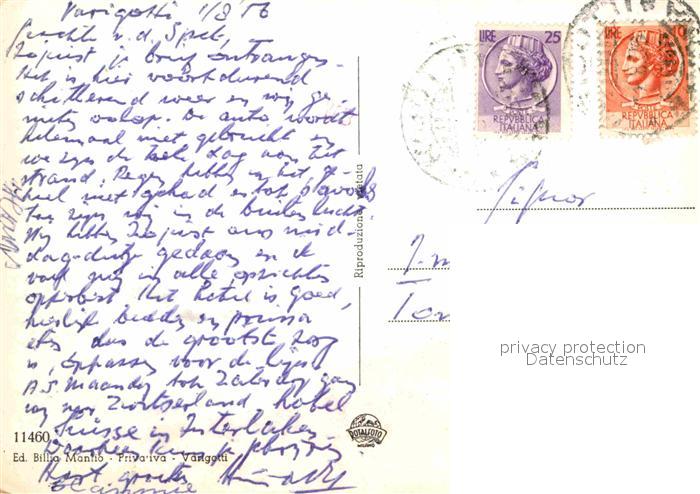 Varigotti 1/8 56
v. d. Spek,
Zojuist je brief ontvangen.
Het is hier voortdurend
schitterend weer en wij ge-
nieten volop. De auto wordt
helemaal niet gebruikt en
we zijn de hele dag aan het
strand. Regen hebben we in het
heel niet gehad en tot 's avonds
zijn wij in de buitenlucht.
Wij hebben zojuist ons mid-
dag-dutje gedaan en ik
voel mij in alle opzichten
opperbest. Het hotel is goed,
heerlijk bedden en
eten dus de grootste zorg
is, oppassen voor de lijn.
A.S. Maandag tot Zaterdag gaan
wij naar Zwitserland hotel
Suisse in Interlaken.
Hart. groeten
LIRE 25
POSTE
REPVBBLICA
ITALIANA
LIRE 10
POSTE
REPVBBLICA
ITALIANA
Signor
Riproduzione vietata
privacy protection
Datenschutz
11460
Ed. Billia Manlio - Priva'iva - Varigotti
ROTALFOTO
MILANO